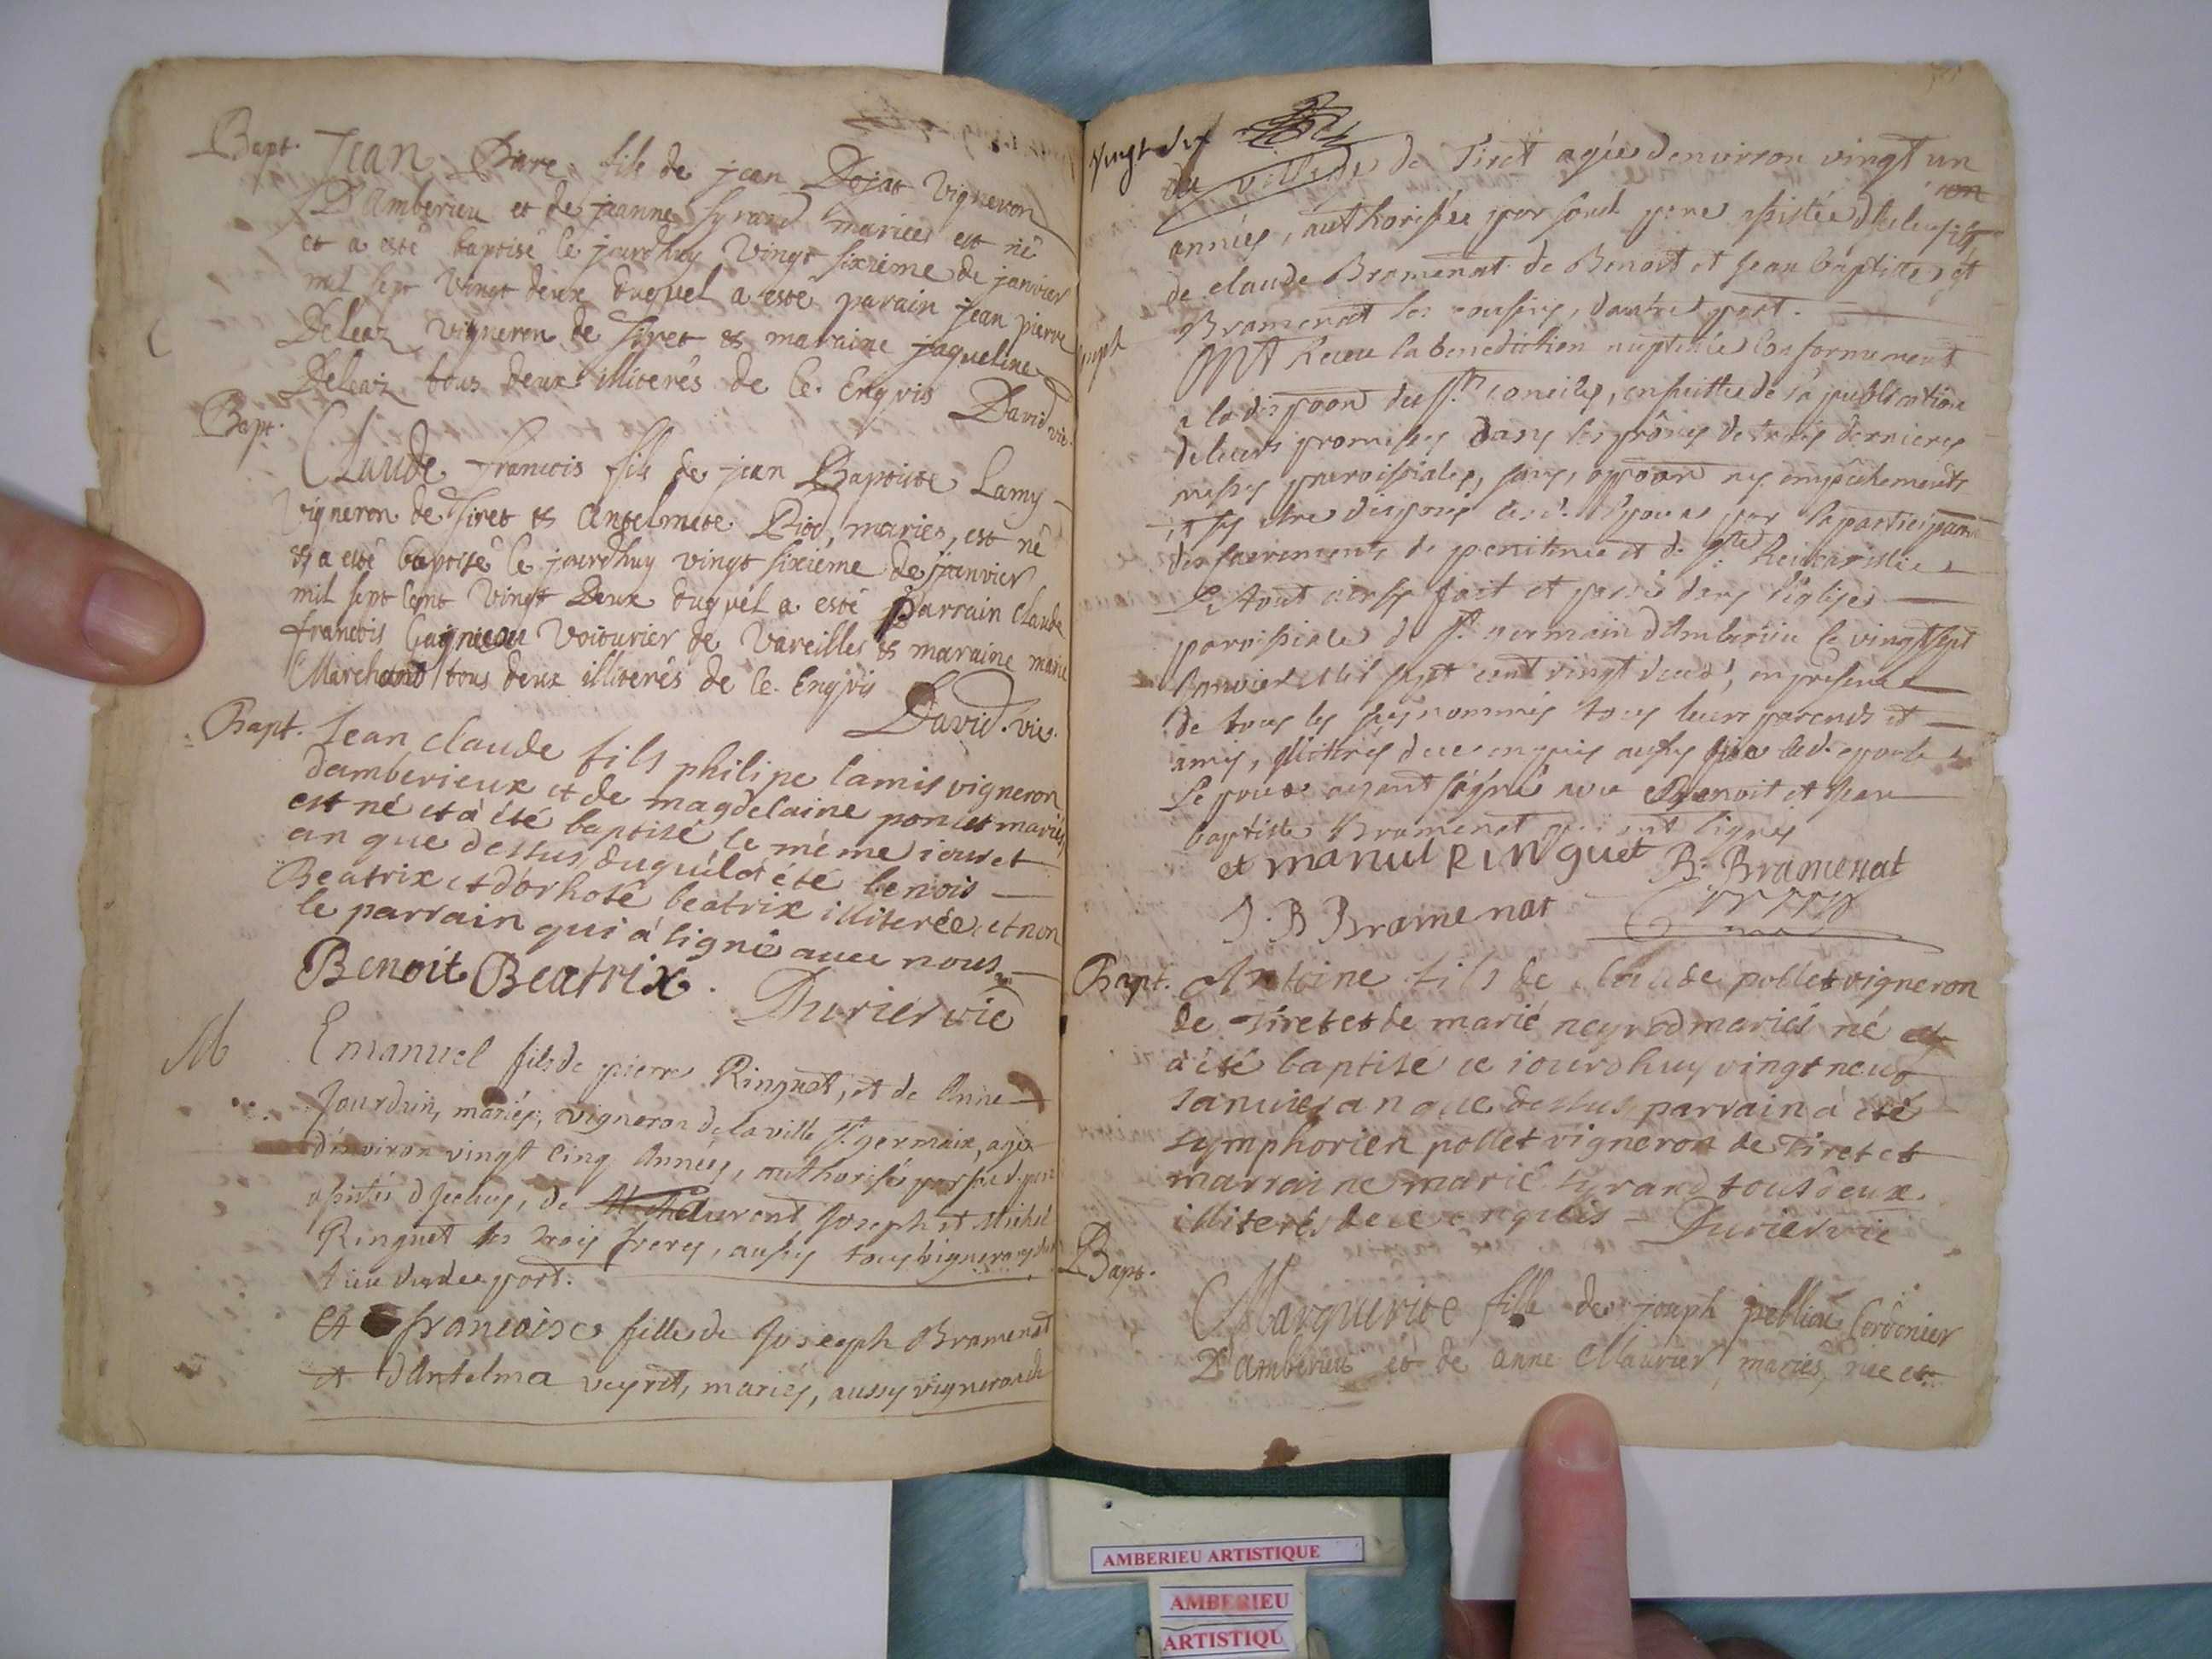 Bapt. Jean Piere fils de jean Dojat Vigneron
D'Amberieu et de jeanne Syrand mariées est né
et a esté baptisé le jourdhuy Vingt sixiéme de janvier
mil sept Vingt deux duquel a esté parain jean pierre
Deleaz vigneron de Tiret & maraine jaqueline
Deleaz tous deux illiterés de ce Enqvis David vic.
Bapt.
Claude francois fils de jean Baptiste Lamy
Vigneron de Tiret & Antelmete Diod, mariés, est né
& a esté baptisé le jourdhuy vingt sixiéme de janvier
mil sept Cent Vingt Deux duquel a esté parrain Claude
francois Voiturier de Vareilles & maraine marie
Marchand tous deux illiterés de ce Enqvis
David. vic.
Bapt. Jean claude fils philipe lamis vigneron
damberieux et de magdelaine poncet mariés
est né et à été baptisé le méme iour et
an que dessus, duquél à été benois
Beatrix et dorhoté beatrix illiterée et non
le parrain qui à signé avec nous
Benoit Beatrix. Durier vic
M Emanuel fils de pierre Ringuet, et de Anne
Jourdain, mariés, vigneron de la ville St. germain, agé
d'environ vingt cinq Années, authorisé par sond. pere
assisté d'jceluy, de Laurent Joseph et Michel
Ringuet ses trois freres, aussy tous vignerons dud
lieu dune part.
Et francoise fille de Joseph Bramenat
et d'Antelma veyret, mariés, aussy vigneron de
vingt de Tiret agée denvirron vingt un
années, authorisée par sond pere assistée d'jceluy
de claude Bramenat de Benoit et jean baptiste
Bramenat ses cousins, dautre part.
ONT Receu la benediction nuptiale Conformement
a la dispoon des Sts. conciles, ensuitte de la publication
de leurs promesses dans les prônes de trois dernieres
messes parroissiales, sans oppoon ny empêchements
et s'y estre disposé lesd. Epoux par la participaon
des sacrements de penitence et de ste. heucaristie
Le tout ainsy fait et passé dans l'église
paroissiale de St. germain d'Amberieu le vingt sept
Janvier Mil sept cent vingt deux, en présence
de tous les susnommés tous leurs parends et
amis, illitérés de ce enquis aussy que lad. epouse
Le poux ayant signé avec Benoit et jean
baptiste Bramenat qui ont signés
et manuel RINguet B. Bramenat
J. B Bramenat
Bapt. Antoine fils de claude pollet vigneron
de Tiret et de marie neyrod mariés né et
à été baptisé ce iourdhuy vingt neuf
Janvier an que dessus, parrain à été
symphorien pollet vigneron de Tiret et
marraine marie syrand tous deux
illiterés de ce enquis Durier vic
Bapt.
Marguerite fille de joseph Cordonier
D'amberieu et de anne Maurier, mariés, née et
AMBERIEU ARTISTIQUE
AMBERIEU
ARTISTIQU